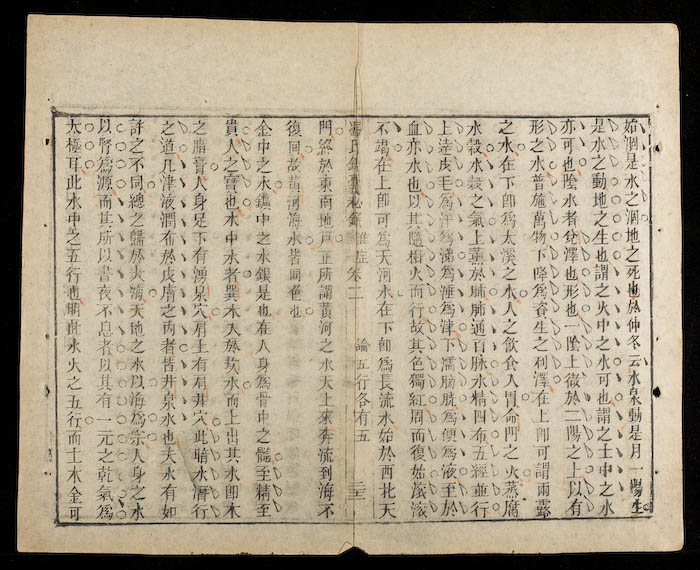 始涸是水之涸地之死也於仲冬云水泉動是月一陽生
是水之動地之生也謂之火中之水可也謂之土中之水
亦可也陰水者兌澤也形也一陰上徹於二陽之上以有
形之水普施萬物下降爲資生之利澤在上卽可謂雨露
之水在下卽爲太溪之水人之飲食入胃命門之火蒸腐
水穀水穀之氣上薰於肺肺通百脉水精四布五經並行
上達皮毛爲汗爲涕爲唾爲津下濡膀胱爲便爲液至於
血亦水也以其隨相火而行故其色獨紅周而復始滾滾
不竭在上卽可爲天河水在下卽爲長流水始於西北天
馮氏錦囊秘錄 雜症卷二 論五行各有五
門終於東南地戸正所謂黃河之水天上來奔流到海不
復回故黃河海水皆同色也
金中之水鑛中之水銀是也在人身爲骨中之髓至精至
貴人之寶也水中木者巽木入於坎水而上出其水卽木
之脂膏人身足下有湧泉穴肩上有肩井穴此暗水潛行
之道凡津液潤布於皮膚之内者皆井泉水也夫水有如
許之不同總之歸於大海天地之水以海爲宗人身之水
以腎爲源而其所以晝夜不息者以其有一元之乾氣爲
太極耳此水中之五行也明此水火之五行而土木金可